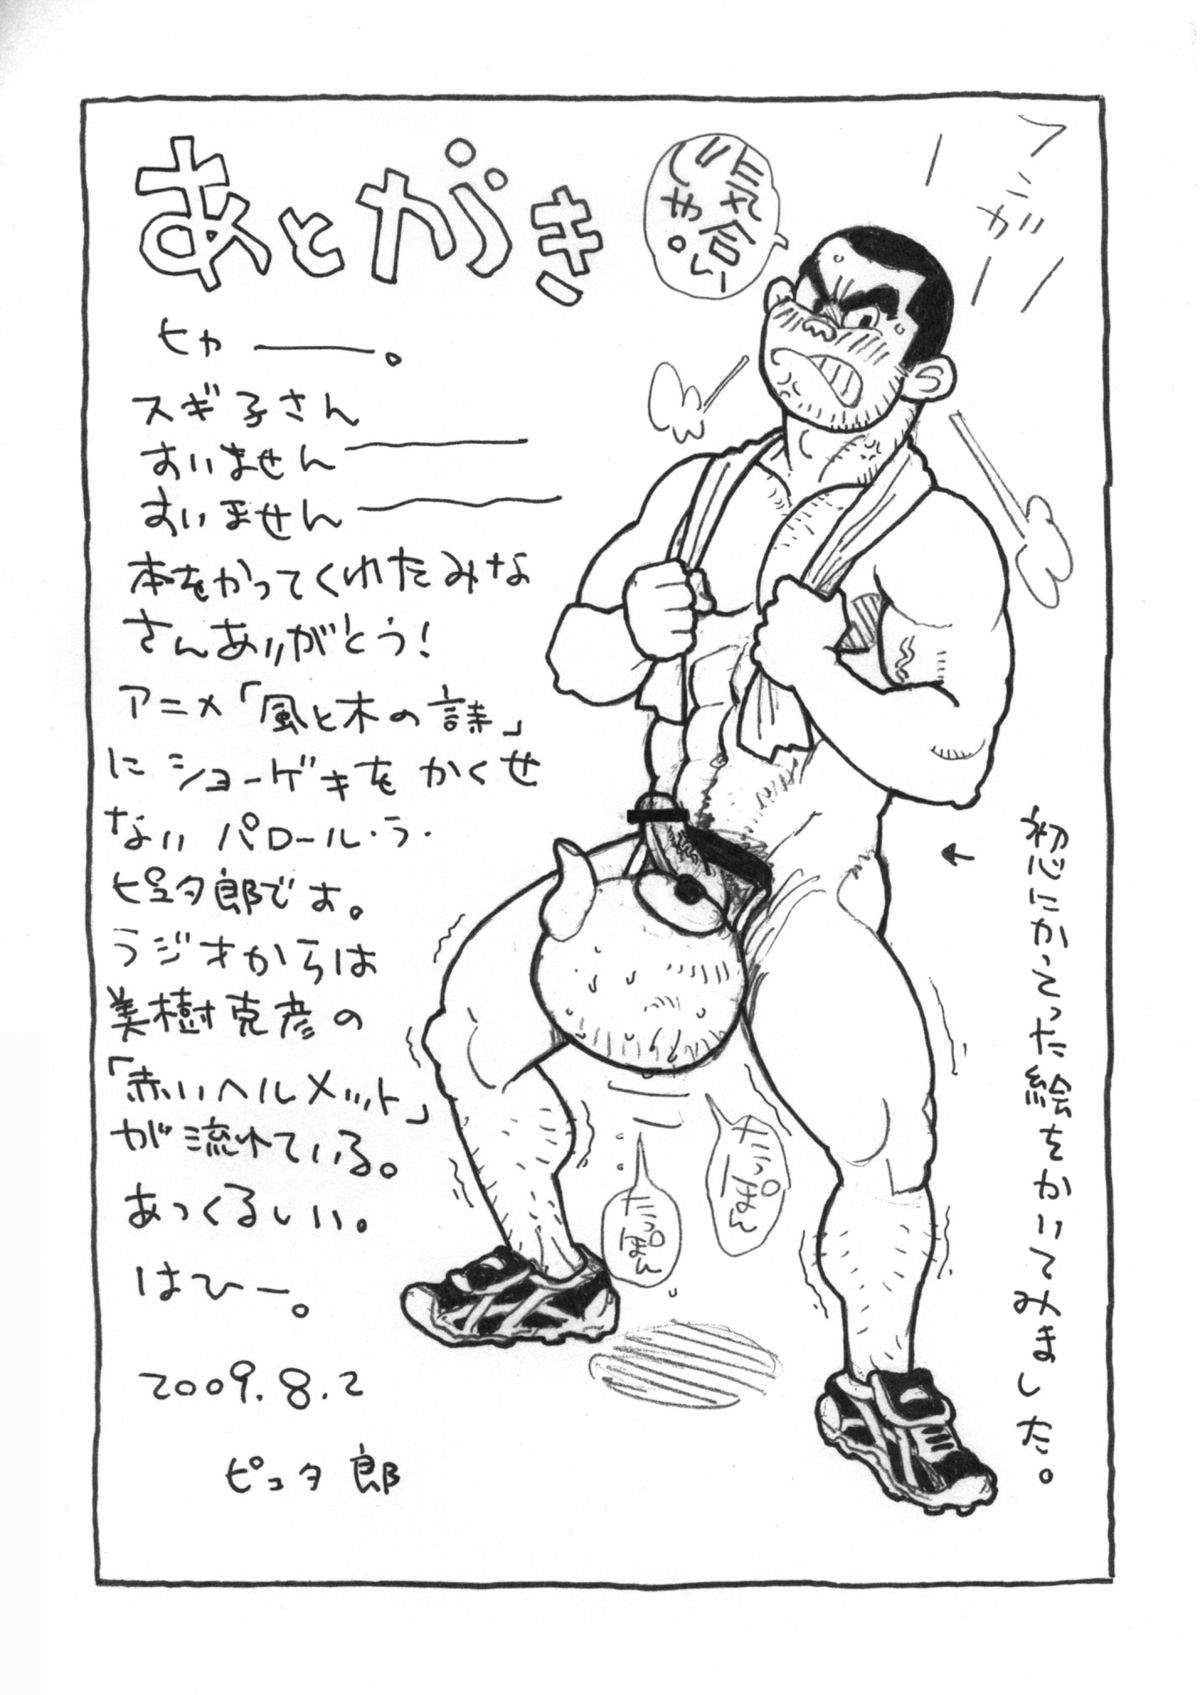 あとがき
ヒャー。
スギ子さん
すいません
すいません
本をかってくれたみな
さんありがとう！
アニメ「風と木の詩」
にショーゲキをかくせ
ないパロール・う・
ピュタ郎です。
ラジオからは
美樹克彦の
「赤いヘルメット」
が流れている。
あっくるしい。
はひー。
2009.8.2
ピュタ郎
気合い
じゃ。
初心にかえった絵をかいてみました。
←
たっぽん
たっぽん